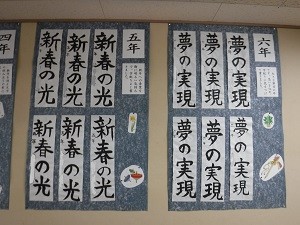 六年
夢の実現
夢の実現
夢の実現
夢の実現
夢の実現
夢の実現
五年
新春の光
新春の光
新春の光
新春の光
新春の光
新春の光
四年